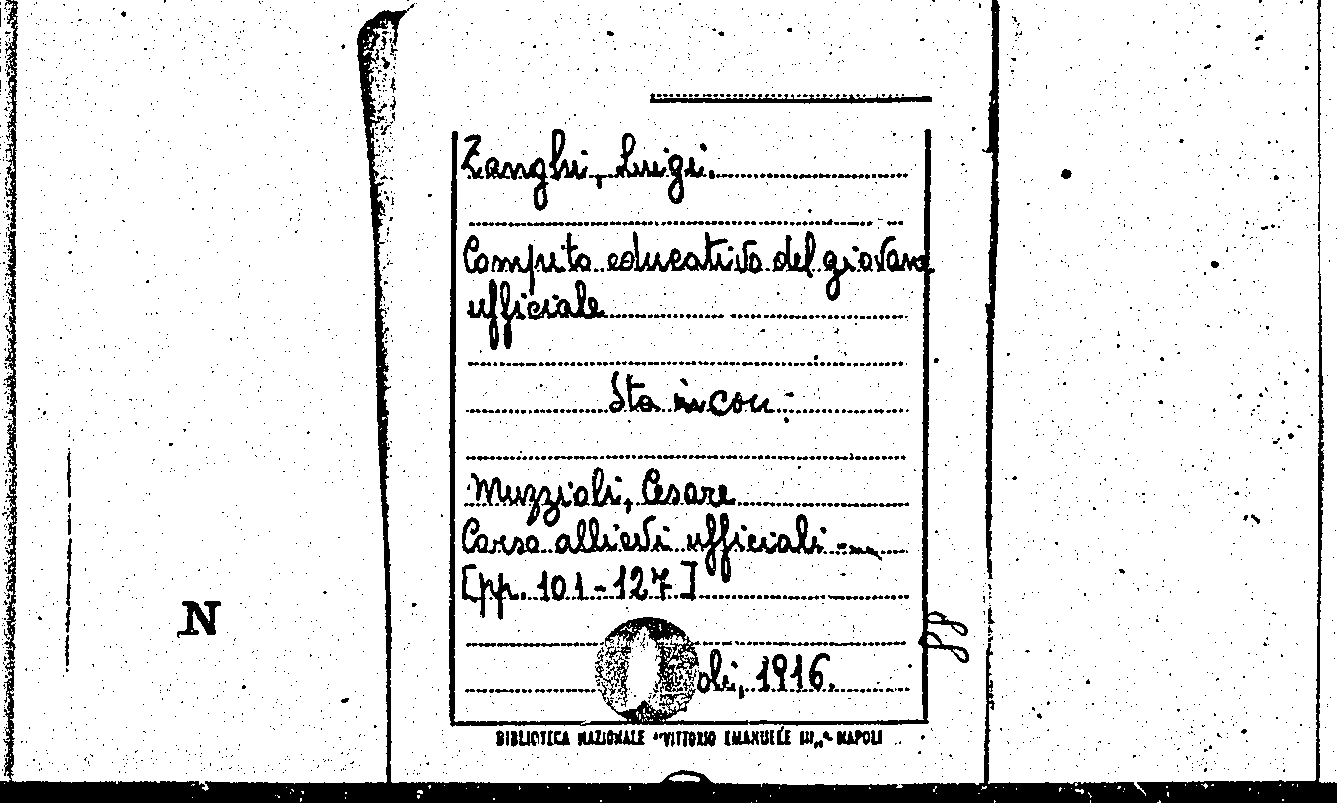 Zanghi, Luigi.
Compito educativo del giovane
ufficiale
Sta in con:
Muzzioli, Cesare
Corso allievi ufficiali ...
[pp. 101-127]
N
oli, 1916.
BIBLIOTECA NAZIONALE "VITTORIO EMANUELE III„ - NAPOLI